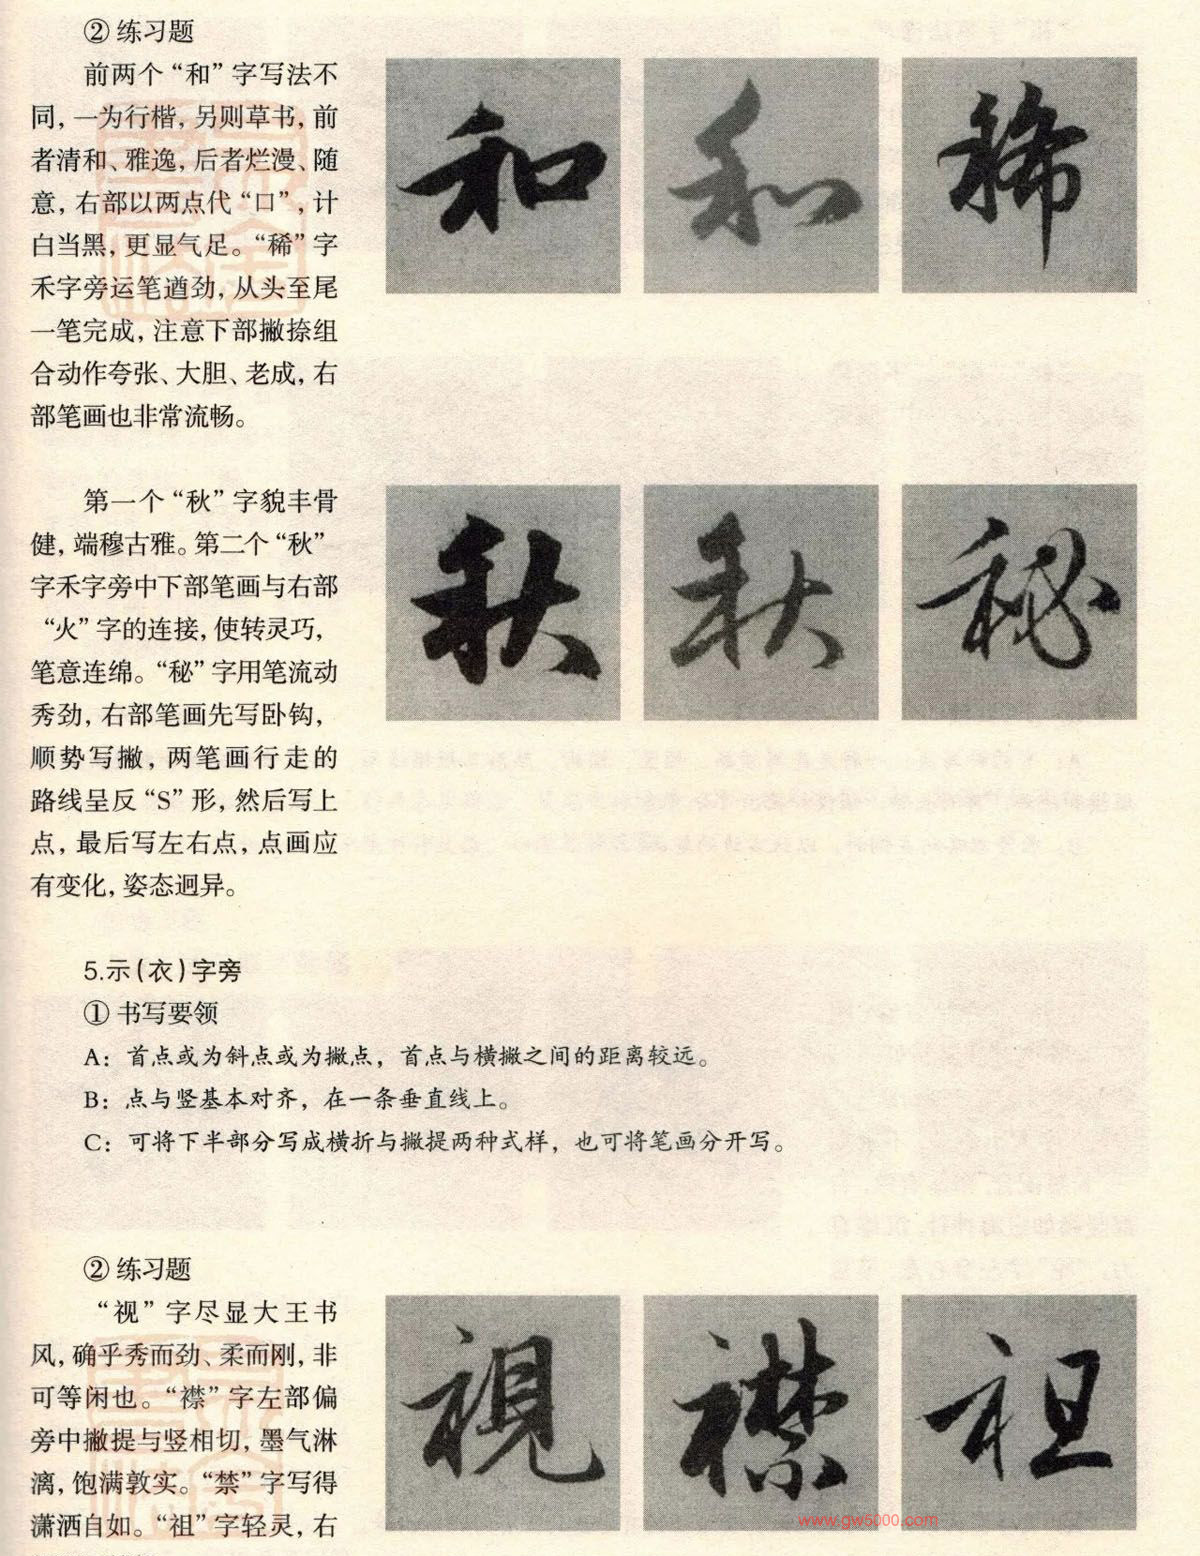 ② 练习题
前两个“和”字写法不
同，一为行楷，另则草书，前
者清和、雅逸，后者烂漫、随
意，右部以两点代“口”，计
白当黑，更显气足。“稀”字
禾字旁运笔遒劲，从头至尾
一笔完成，注意下部撇捺组
合动作夸张、大胆、老成，右
部笔画也非常流畅。
和 和 稀
第一个“秋”字貌丰骨
健，端穆古雅。第二个“秋”
字禾字旁中下部笔画与右部
“火”字的连接，使转灵巧，
笔意连绵。“秘”字用笔流动
秀劲，右部笔画先写卧钩，
顺势写撇，两笔画行走的
路线呈反“S”形，然后写上
点，最后写左右点，点画应
有变化，姿态迥异。
秋 秋 秘
5.示(衣)字旁
① 书写要领
A：首点或为斜点或为撇点，首点与横撇之间的距离较远。
B：点与竖基本对齐，在一条垂直线上。
C：可将下半部分写成横折与撇提两种式样，也可将笔画分开写。
② 练习题
“视”字尽显大王书
风，确乎秀而劲、柔而刚，非
可等闲也。“襟”字左部偏
旁中撇提与竖相切，墨气淋
漓，饱满敦实。“禁”字写得
潇洒自如。“祖”字轻灵，右
視 襟 祖
www.gw5000.com